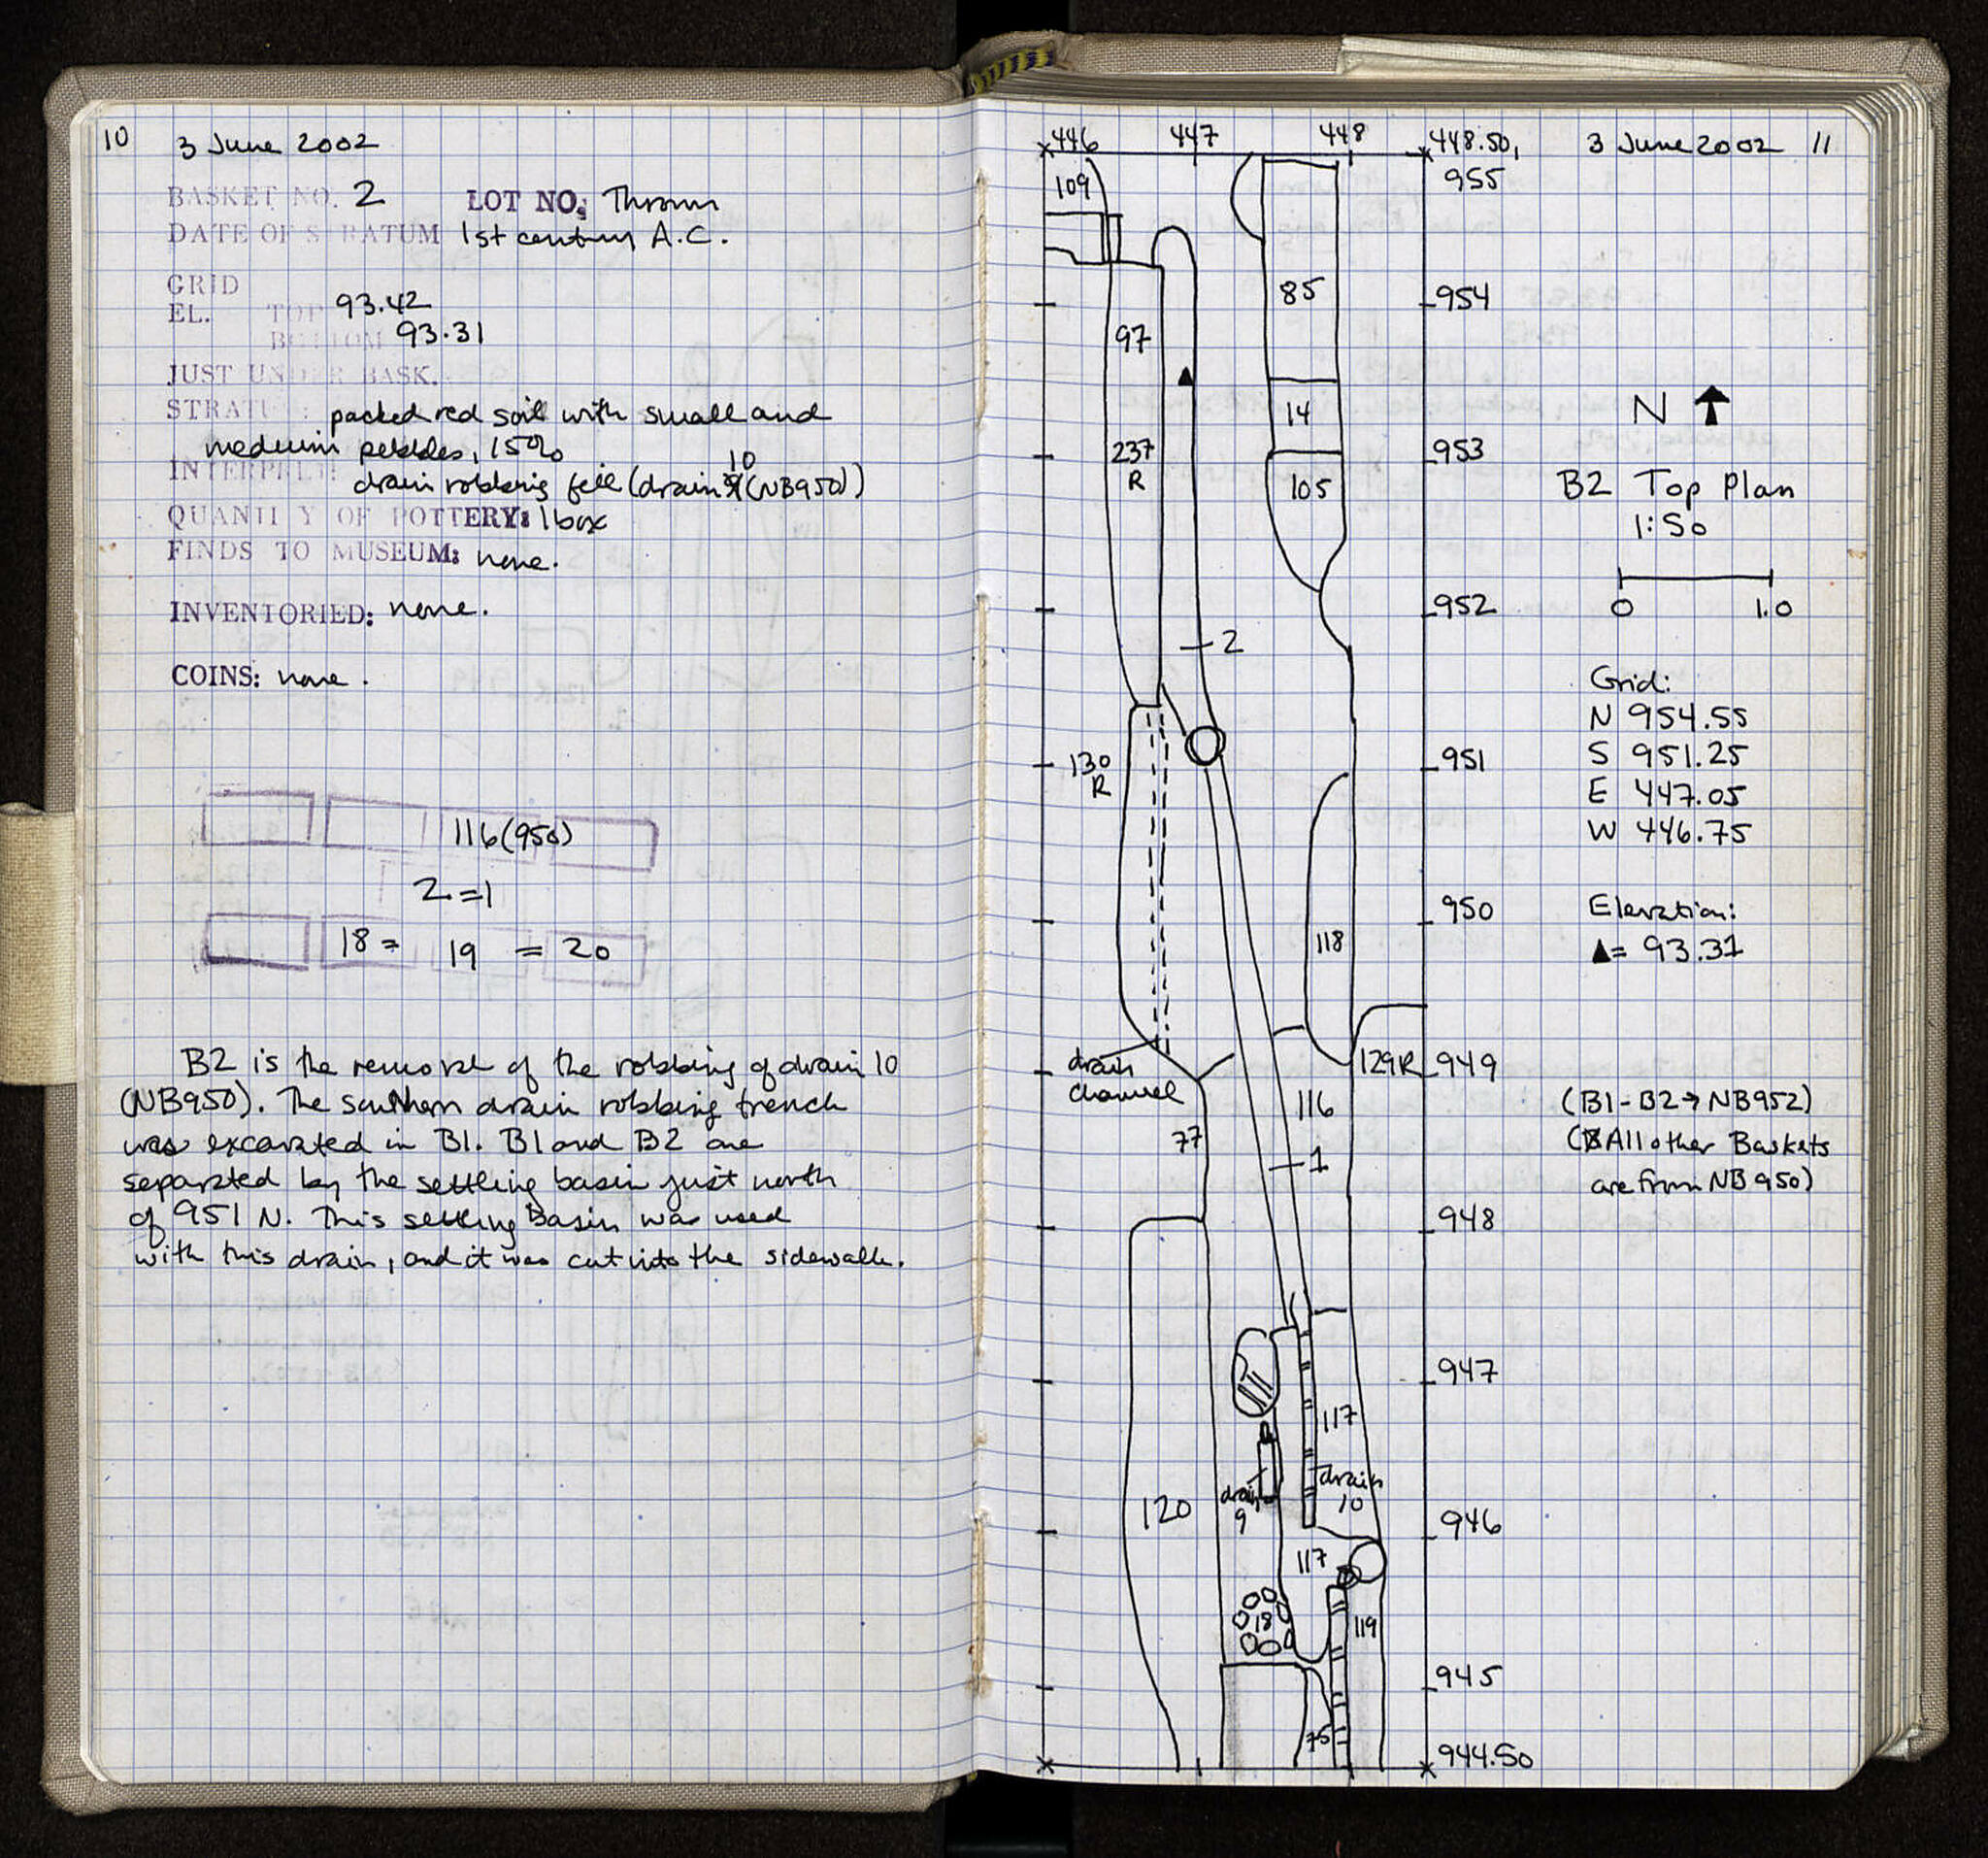 10 3 June 2002
BASKET NO. 2 LOT NO. Thrown
DATE OF STRATUM 1st century A.C.
GRID
EL. TOP 93.42
BOTTOM 93.31
JUST UNDER BASK.
STRATUM: packed red soil with small and
medium pebbles, 15%
INTERPRET: drain robbing fill (drain 10 (NB950))
QUANTITY OF POTTERY: 1 box
FINDS TO MUSEUM: none.
INVENTORIED: none.
COINS: none.
116(950)
2=1
18= 19 = 20
B2 is the removal of the robbing of drain 10
(NB950). The southern drain robbing trench
was excavated in B1. B1 and B2 are
separated by the settling basin just north
of 951 N. This settling Basin was used
with this drain, and it was cut into the sidewalk.
446 447 448 448.50,
955
3 June 2002 11
109
85
954
97
14
N
237
R
953
105
B2 Top Plan
1:50
952
0 1.0
2
Grid:
N 954.55
S 951.25
E 447.05
W 446.75
130
R
951
950
118
Elevation:
▲= 93.31
drain
channel
129R
949
116
(B1-B2→NB952)
(All other Baskets
are from NB950)
77
1
948
947
117
120
drain
9
drain
10
946
117
18
119
945
75
944.50